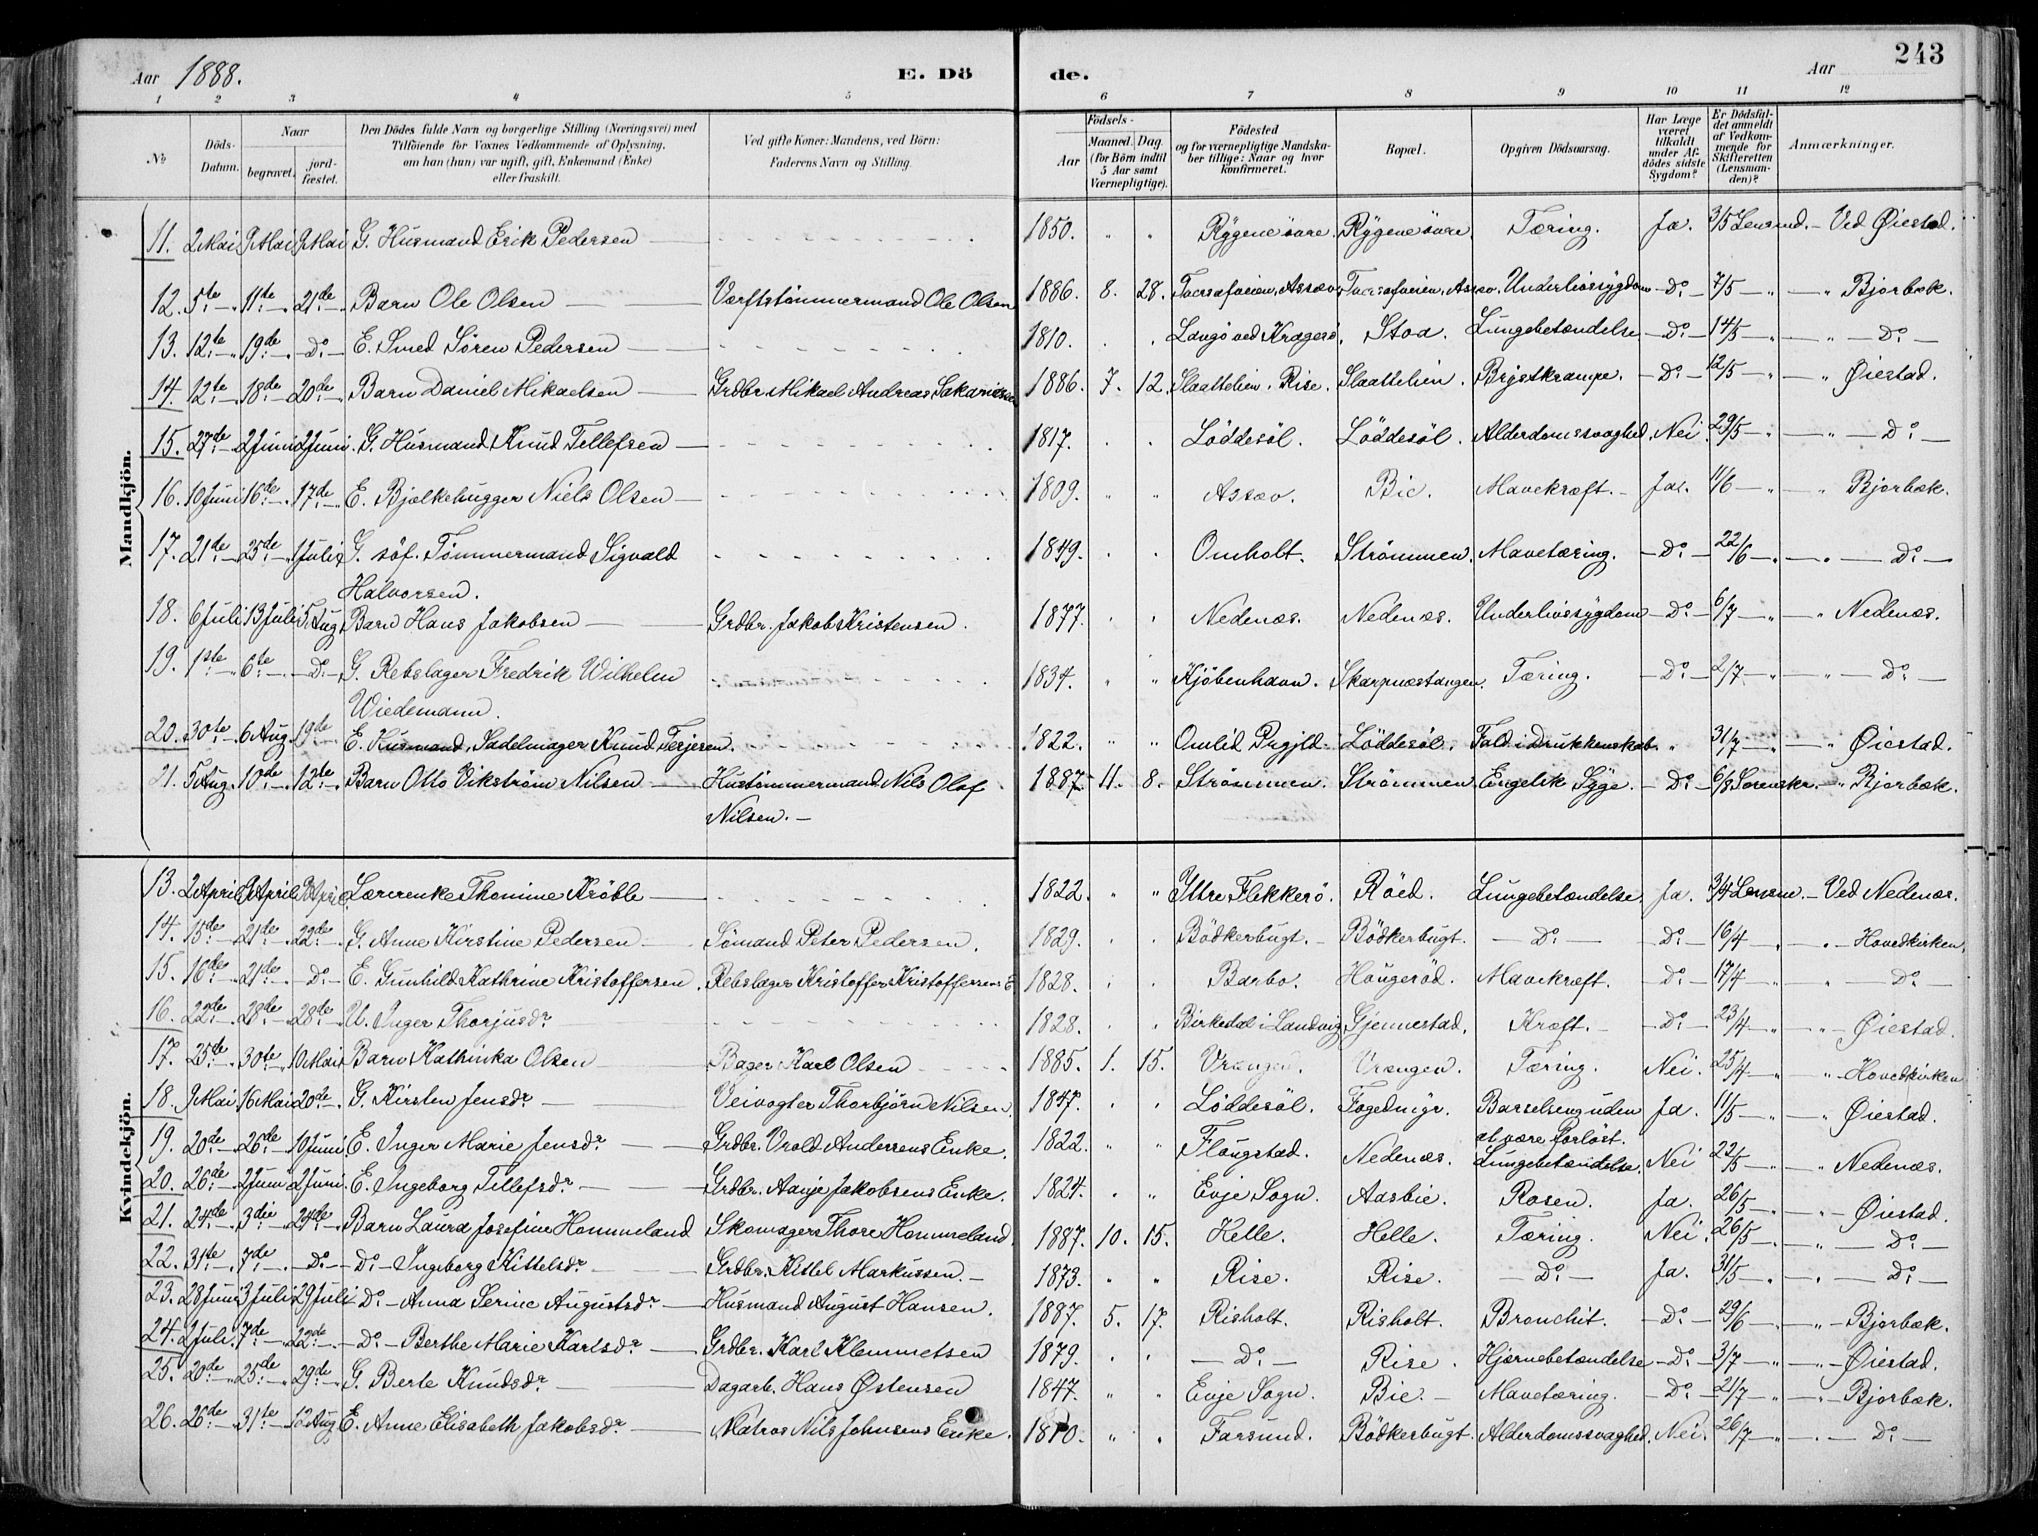 243
Aar 1888. E. Dö de. Aar
1 2 3 4 5 6 7 8 9 10 11 12
№ Döds-Datum. Naar begravet. jordfæstet. Den Dödes fulde Navn og borgerlige Stilling (Næringsvei) med Tilföiende for Voxnes Vedkommende af Oplysning, om han (hun) var ugift, gift, Enkemand (Enke) eller fraskilt. Ved gifte Koner: Mandens, ved Börn: Faderens Navn og Stilling. Födsels- Aar Maaned. Dag. (for Börn indtil 5 Aar samt Værnepligtige). Födested og for værnepligtige Mandskaber tillige: Naar og hvor konfirmeret. Bopæl. Opgiven Dödsaarsag. Har Læge været tilkaldt under Afdödes sidste Sygdom? Er Dödsfaldet anmeldt af Vedkommende for Skifteretten (Lensmanden)? Anmærkninger.
Mandkjön.
11. 2 Mai 9 Mai 9 Mai G. Husmand Erik Pedersen 1850. " " Rygene øvre. Rygene øvre. Tæring. Ja. 3/5 Lensmd. - Ved Øiestad.
12. 5te 11te 21de Barn Ole Olsen Værftstømmermand Ole Olsen 1886. 8. 28. Assæv Underlivssygdom Do 7/5 " " Bjorbæk.
13. 12te 19de Do E. Smed Søren Pedersen 1810. Langö ved Kragerö. Stoa. Lungebetændelse Do 14/5 " " Do
14. 12te 18de 20de Barn Daniel Mikaelsen Grdbr. Mikael Andreas Sakariasen 1886. 7. 12. Slaattelien. Rise. Slaattelien. Brystkrampe. Do 12/5 " Øiestad.
15. 27de 2 Juni 2 Juni G. Husmand Knud Tellefsen 1817. Löddesöl. Löddesöl. Alderdomssvaghed. Nei. 29/5 " Do
16. 10 Juni 16de 17de E. Bjælkehugger Niels Olsen 1809. " " Assæv. Bie. Mavekræft. Ja. 11/6 " " Bjorbæk.
17. 21de 25de 1 Juli G. søf. Tømmermand Sigvald 1849. Omholt. Strømmen. Mavetæring. Do 22/6 " " Do
Halvorsen.
18. 6 Juli 13 Juli 5 Aug. Barn Hans Jakobsen Grdbr. Jakob Kristensen. 1877. Nedenæs. Nedenæs. Underlivssygdom Do 6/7 " " Nedenæs.
19. 1ste 6te Do G. Rebslager Fredrik Wilhelm 1834. " " Kjöbenhavn. Skarpnæstangen. Tæring. Do 2/7 " " Do
Wiedemann.
20. 30te 6 Aug. 19de E. Husmand, Sadelmager Knud Terjesen. 1822. " " Omlid Löddesöl. Fald i Drukkenskab. " 31/7 " " Øiestad.
21. 5 Aug. 10de 12te Barn Otto Vikstrøm Nilsen Hustömmermand Nils Olaf 1887. 11. 8. Strömmen. Strömmen. Engelsk Syge. Do 6/8 Sorenskr. " Bjorbæk.
Nilsen.
Kvindekjön.
13. 2 April 9 April 9 April Lærerenke Thomine Krøble 1822. " " Yttre Flekkerö. Röed. Lungebetændelse. Ja. 3/4 Lensm. - Ved Nedenæs.
14. 15de 21de 22de G. Anne Kirstine Pedersen Sömand Peter Pedersen. 1829. Bödkerbugt. Bödkerbugt. Do Do 16/4 " " Hovedkirken.
15. 16de 21de Do E. Gunhild Kathrine Kristoffersen. Rebslager Kristoffer Kristoffersens E 1828. Barbo. Haugeröd. Mavekræft. Do 17/4 " " Do
16. 22de 28de 28de U. Inger Thorjusdr 1828. Birkedal i Landvig Gjennestad. Kræft. Do 23/4 " " Øiestad.
17. 25de 30te 10 Mai Barn Kathinka Olsen Bager Karl Olsen 1885. 1. 15. Vrængen. Vrængen. Tæring. Nei. 25/4 " " Hovedkirken
18. 9 Mai 16 Mai 20de G. Kirsten Jensdr Veivogter Thorbjörn Nilsen. 1847. Löddesöl. Fogedmyr. Barselseng uden Ja. 11/5 " " Øiestad.
at være forløst.
19. 20de 26de 10 Juni E. Inger Marie Jensdr Grdbr. Vrold Andersens Enke. 1822. " Flöugstad. Nedenæs. Lungebetændelse. Nei 22/5 " " Nedenæs.
20. 26de 2 Juni 2 Juni E. Ingeborg Tellefsdr Grdbr. Aanje Jakobsens Enke. 1824. " Evje Sogn. Aasbie. Rosen. Ja. 26/5 " " Øiestad.
21. 24de 3die 24de Barn Laura Josefine Hommeland Skomager Thore Hommeland. 1887. 10. 15. Helle. Helle. Tæring. Nei. 26/5 " " Do
22. 31te 7de Do Do Ingeborg Kittelsdr Grdbr. Kittel Markussen. 1873. " " Rise. Rise. Do Ja. 31/5 " " Do
23. 28 Juni 3 Juli 29 Juli Do Anna Serine Augustsdr Husmand August Hansen. 1887. 5. 17. Risholt. Risholt. Bronchit. Do 29/6 " " Bjorbæk.
24. 2 Juli. 7de 22de Do Berthe Marie Karlsdr Grdbr. Karl Klemmetsen 1879. Do Rise. Hjernebetændelse Do 3/7 " " Øiestad.
25. 20de 25de 29de G. Berte Knudsdr Dagarb. Hans Østensen 1847. " Evje Sogn. Bie. Mavetæring. Do 21/7 " " Bjorbæk.
26. 26de 31te 12 Aug. E. Anne Elisabeth Jakobsdr Matros Nils Johnsens Enke. 1810. " Farsund. Bödkerbugt. Alderdomssvaghed. Nei. 26/7 " " Do